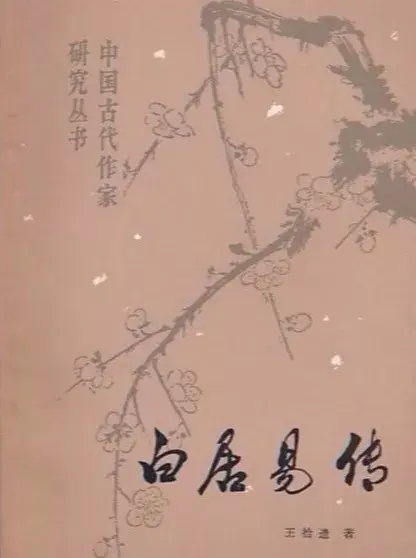 中国古代作家
研究丛书
白居易传
王拾遗 著